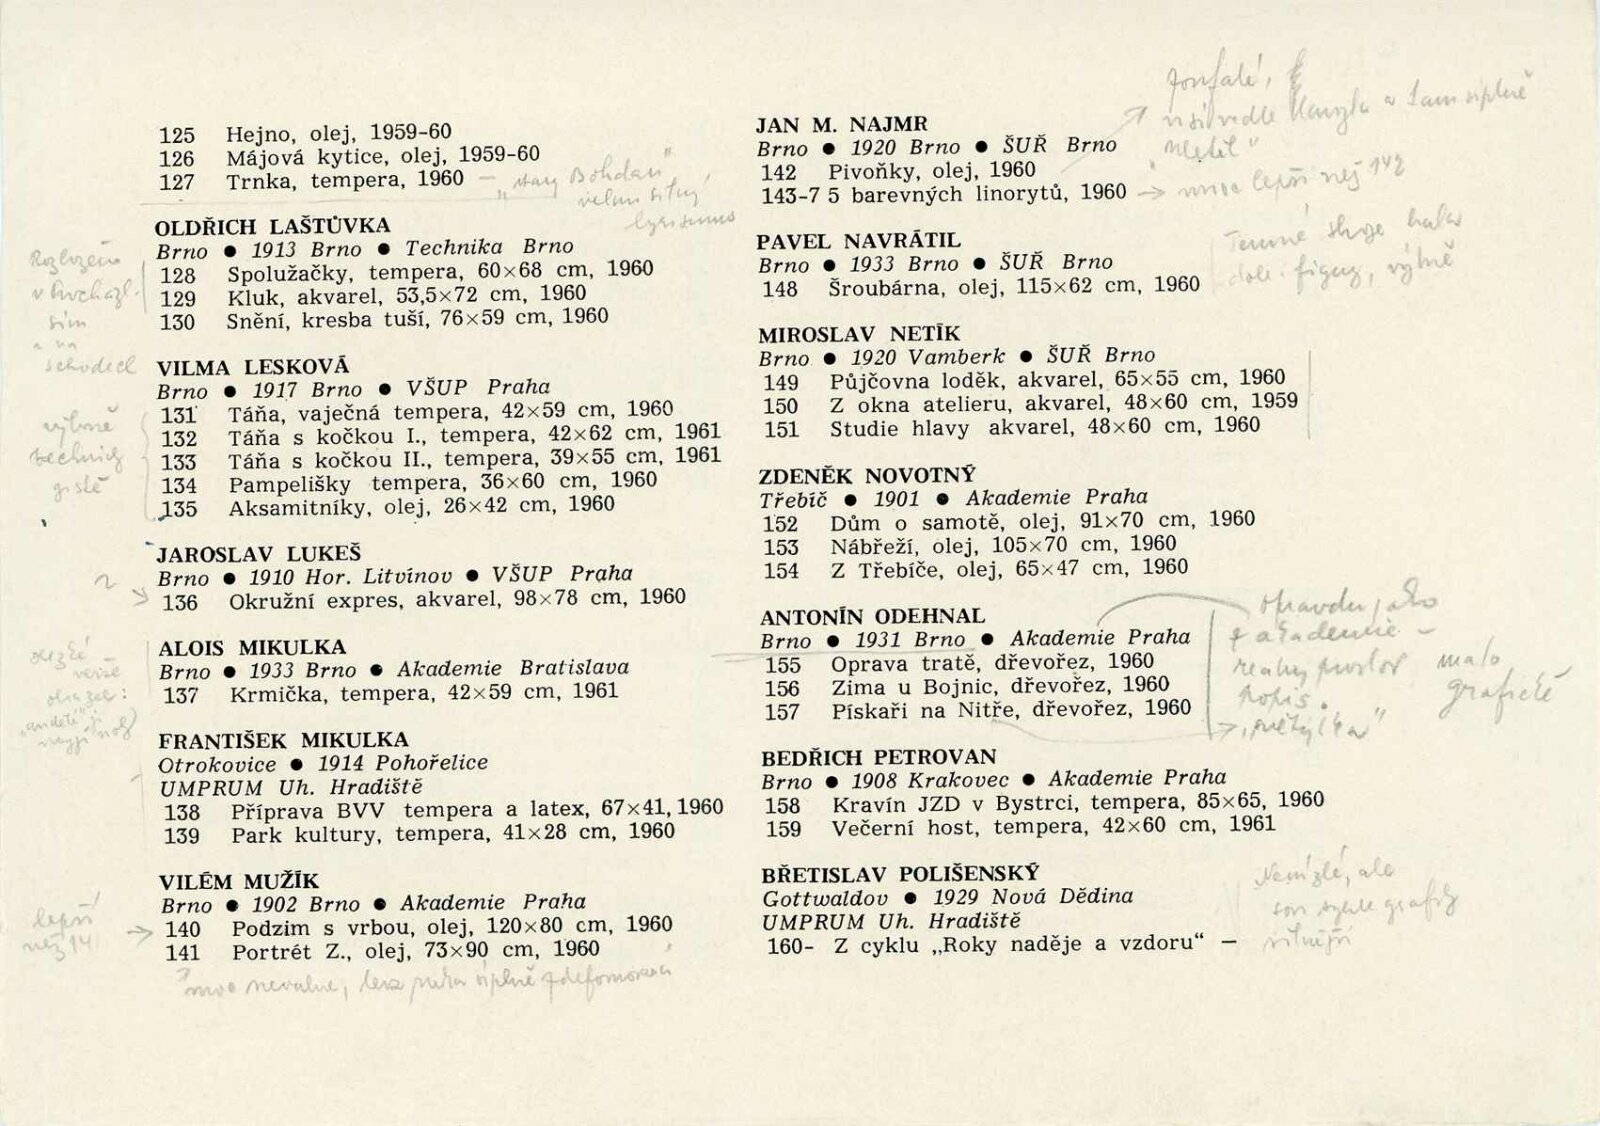 125 Hejno, olej, 1959-60
126 Májová kytice, olej, 1959-60
127 Trnka, tempera, 1960 — „starý Bohdan"
velmi silný
lyrismus
OLDŘICH LAŠTŮVKA
Brno ● 1913 Brno ● Technika Brno
128 Spolužačky, tempera, 60×68 cm, 1960
129 Kluk, akvarel, 53,5×72 cm, 1960
130 Snění, kresba tuší, 76×59 cm, 1960
a na
schodech
VILMA LESKOVÁ
Brno ● 1917 Brno ● VŠUP Praha
131 Táňa, vaječná tempera, 42×59 cm, 1960
132 Táňa s kočkou I., tempera, 42×62 cm, 1961
133 Táňa s kočkou II., tempera, 39×55 cm, 1961
134 Pampelišky tempera, 36×60 cm, 1960
135 Aksamitníky, olej, 26×42 cm, 1960
výborné
technicky
čistě
JAROSLAV LUKEŠ
Brno ● 1910 Hor. Litvínov ● VŠUP Praha
136 Okružní expres, akvarel, 98×78 cm, 1960
ALOIS MIKULKA
Brno ● 1933 Brno ● Akademie Bratislava
137 Krmička, tempera, 42×59 cm, 1961
FRANTIŠEK MIKULKA
Otrokovice ● 1914 Pohořelice
UMPRUM Uh. Hradiště
138 Příprava BVV tempera a latex, 67×41, 1960
139 Park kultury, tempera, 41×28 cm, 1960
VILÉM MUŽÍK
Brno ● 1902 Brno ● Akademie Praha
140 Podzim s vrbou, olej, 120×80 cm, 1960
141 Portrét Z., olej, 73×90 cm, 1960
lepší
než 141
nevalné, ruka úplně zdeformovaná
JAN M. NAJMR
Brno ● 1920 Brno ● ŠUŘ Brno
142 Pivoňky, olej, 1960
143-7 5 barevných linorytů, 1960
zoufalé,
a tam úplně
→ mnoho lepší než 142
PAVEL NAVRÁTIL
Brno ● 1933 Brno ● ŠUŘ Brno
148 Šroubárna, olej, 115×62 cm, 1960
Temné stroje hala
dole figury, výborně
MIROSLAV NETÍK
Brno ● 1920 Vamberk ● ŠUŘ Brno
149 Půjčovna loděk, akvarel, 65×55 cm, 1960
150 Z okna atelieru, akvarel, 48×60 cm, 1959
151 Studie hlavy akvarel, 48×60 cm, 1960
ZDENĚK NOVOTNÝ
Třebíč ● 1901 ● Akademie Praha
152 Dům o samotě, olej, 91×70 cm, 1960
153 Nábřeží, olej, 105×70 cm, 1960
154 Z Třebíče, olej, 65×47 cm, 1960
ANTONÍN ODEHNAL
Brno ● 1931 Brno ● Akademie Praha
155 Oprava tratě, dřevořez, 1960
156 Zima u Bojnic, dřevořez, 1960
157 Pískaři na Nitře, dřevořez, 1960
opravdu jako
z akademie —
reálný prostor málo
popis. grafické
→ „světýlka"
BEDŘICH PETROVAN
Brno ● 1908 Krakovec ● Akademie Praha
158 Kravín JZD v Bystrci, tempera, 85×65, 1960
159 Večerní host, tempera, 42×60 cm, 1961
BŘETISLAV POLIŠENSKÝ
Gottwaldov ● 1929 Nová Dědina
UMPRUM Uh. Hradiště
160- Z cyklu „Roky naděje a vzdoru" —
Nemizlé, ale
jsou grafiky
silnější